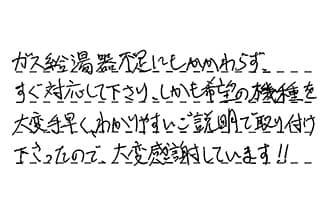 ガス給湯器不足にもかかわらず、
すぐ対応して下さり、しかも希望の機種を
大変手早く、わかりやすいご説明で取り付け
下さったので、大変感謝しています!!